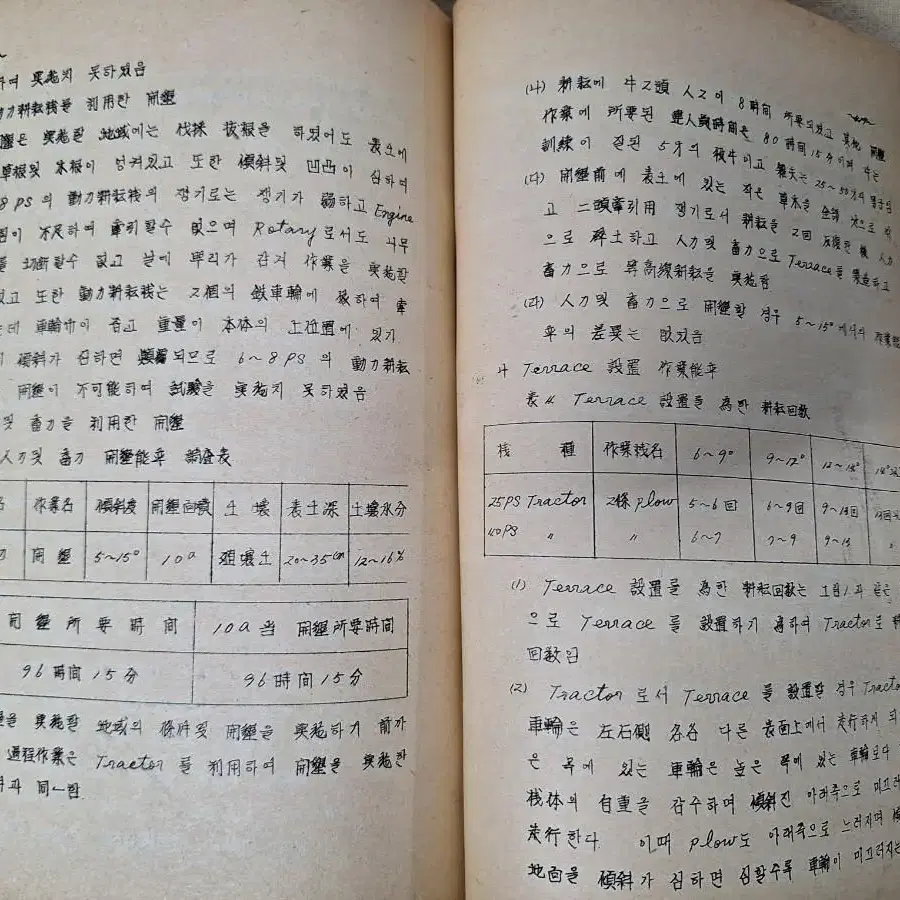 하여 実施치 못하였음
動力耕耘機를 利用한 開墾
開墾은 実施할 地域에는 伐採 拔根을 하였어도 表土에
草根및 木根이 엉켜있고 또한 傾斜및 凹凸이 심하여
8PS의 動力耕耘機의 쟁기로는 쟁기가 弱하고 Engine
힘이 不足하여 牽引할수 없으며 Rotary로서도 나무
를 切断할수 없고 날에 뿌리가 감겨 作業을 実施할
없고 또한 動力耕耘機는 2個의 鉄車輪에 依하여 牽
는데 車輪巾이 좁고 重量이 本体의 上位置에 있기
傾斜가 심하면 되므로 6~8PS의 動力耕耘
開墾이 不可能하여 試験을 実施치 못하였음
및 畜力을 利用한 開墾
人力및 畜力 開墾能率 調査表
名 作業名 傾斜度 開墾面積 土壤 表土深 土壤水分
力 開墾 5~15° 10a 埴壤土 20~35cm 12~16%
開墾所要時間 10a当 開墾所要時間
96時間15分 96時間15分
実施할 地域의 條件및 開墾을 実施하기 前가
過程作業은 Tractor를 利用하여 開墾을 実施한
과 同一함
(나) 耕耘에 牛2頭 人2이 8時間 所要되었고 其他 開墾
作業에 所要된 延人員時間은 80時間15分이며 牛는
訓練이 잘된 5才의 役牛이고
(다) 開墾前에 表土에 있는 작은 草木을
고 二頭牽引用 쟁기로서 耕耘을 2回 反復한 後 人力
으로 碎土하고 人力및 畜力으로 Terrace를 製造하고
畜力으로 等高線耕耘을 実施함
(라) 人力및 畜力으로 開墾할 경우 5~15°에서의 作業能
率의 差異는 없었음
나 Terrace 設置 作業能率
表11 Terrace 設置를 為한 耕耘回数
機種 作業機名 6~9° 9~12° 12~15°
25PS Tractor 2條 plow 5~6回 6~9回 9~13回
40PS 〃 〃 6~7 7~9 9~13 〃
(1) Terrace 設置를 為한 耕耘回数는 그림1과 같은
으로 Terrace를 設置하기 為하여 Tractor로 耕
回数임
(2) Tractor로서 Terrace를 設置할 경우 Tractor
車輪은 左右側 各各 다른 表面上에서 走行하게 되
은 곡에 있는 車輪은 높은 곡에 있는 車輪보다
機体의 自重을 감수하며 傾斜진 아래쪽으로 미끄러
走行한다 이때 plow도 아래쪽으로 느러지며
地面을 傾斜가 심하면 심할수록 車輪이 미끄러지는